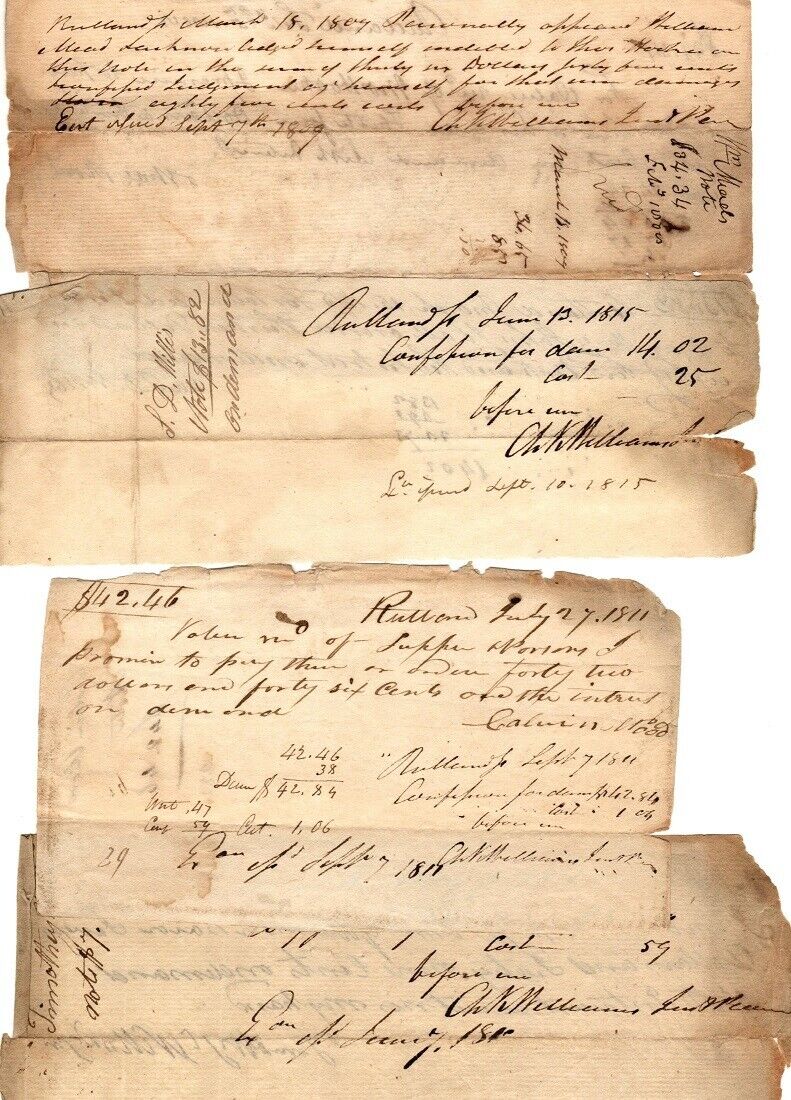 Rutland ss March 18. 1809 Personally appeard William
Mead & acknowledged himself indebted to Thos Hooker on
this Note in the sum of thirty six Dollars sixty five cents
confessed Judgment against himself for that sum damages
eighty five cents costs before me
Ch K Williams Just Peace
Exct issued Sept 7th 1809
Wm Meads
Note
$34.34
Feby 1808
March 18. 1809
36.65
85
S. D. Wills
Note $13.82
on demand
Rutland ss June 13. 1815
Confession for dam 14.02
Cost 25
before me
Ch K Williams
Ex issued Sept. 10. 1815
$42.46
Rutland July 27. 1811
Value recd of Tapper & Parsons I
promise to pay them or order forty two
dollars and forty six cents and the intrest
on demand
Calvin Wood
42.46
38
Dam $42.84
Writ .47
Conf 59 Cost. 1.06
Rutland ss Sept 7 1811
Confession for dam $42.84
Cost 1.06
before me
Ch K Williams Just Peace
39
Exon issd Sept 7 1811
Timothy
note $7.
Cost 59
before me
Ch K Williams Just Peace
Exon issd June 7. 181